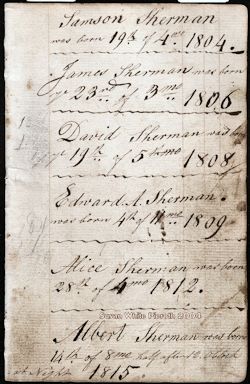 Samson Sherman
was born 19th of 4mo 1804.
James Sherman was born
ye 23rd of 3mo 1806
David Sherman was born
ye 19th of 5th mo 1808
Edward A. Sherman.
was born 4th of 11mo 1809
Alice Sherman was born
28th of 4mo 1812.
Susan White Pieroth 2004
Albert Sherman was born
14th of 8mo half after 10 o'clock
at Night 1815.